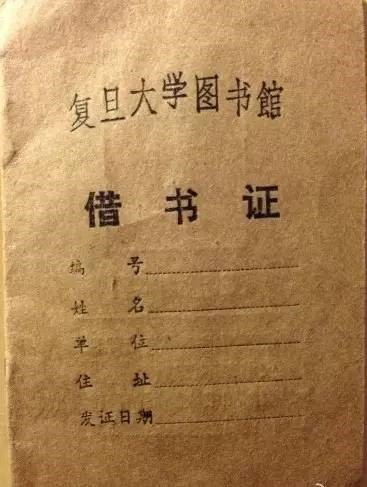 复旦大学图书館
借书证
编号
姓名
单位
住址
发证日期